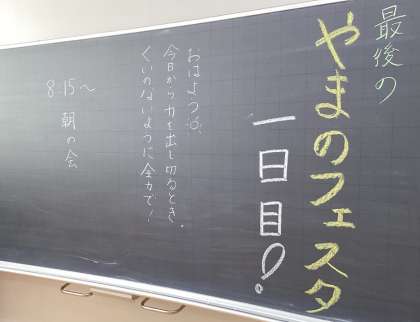 最後の
やまのフェスタ
一日目!
おはようつ。
今日から力を出し切るとき。
くいのないように全力で!
8:15〜
朝の会